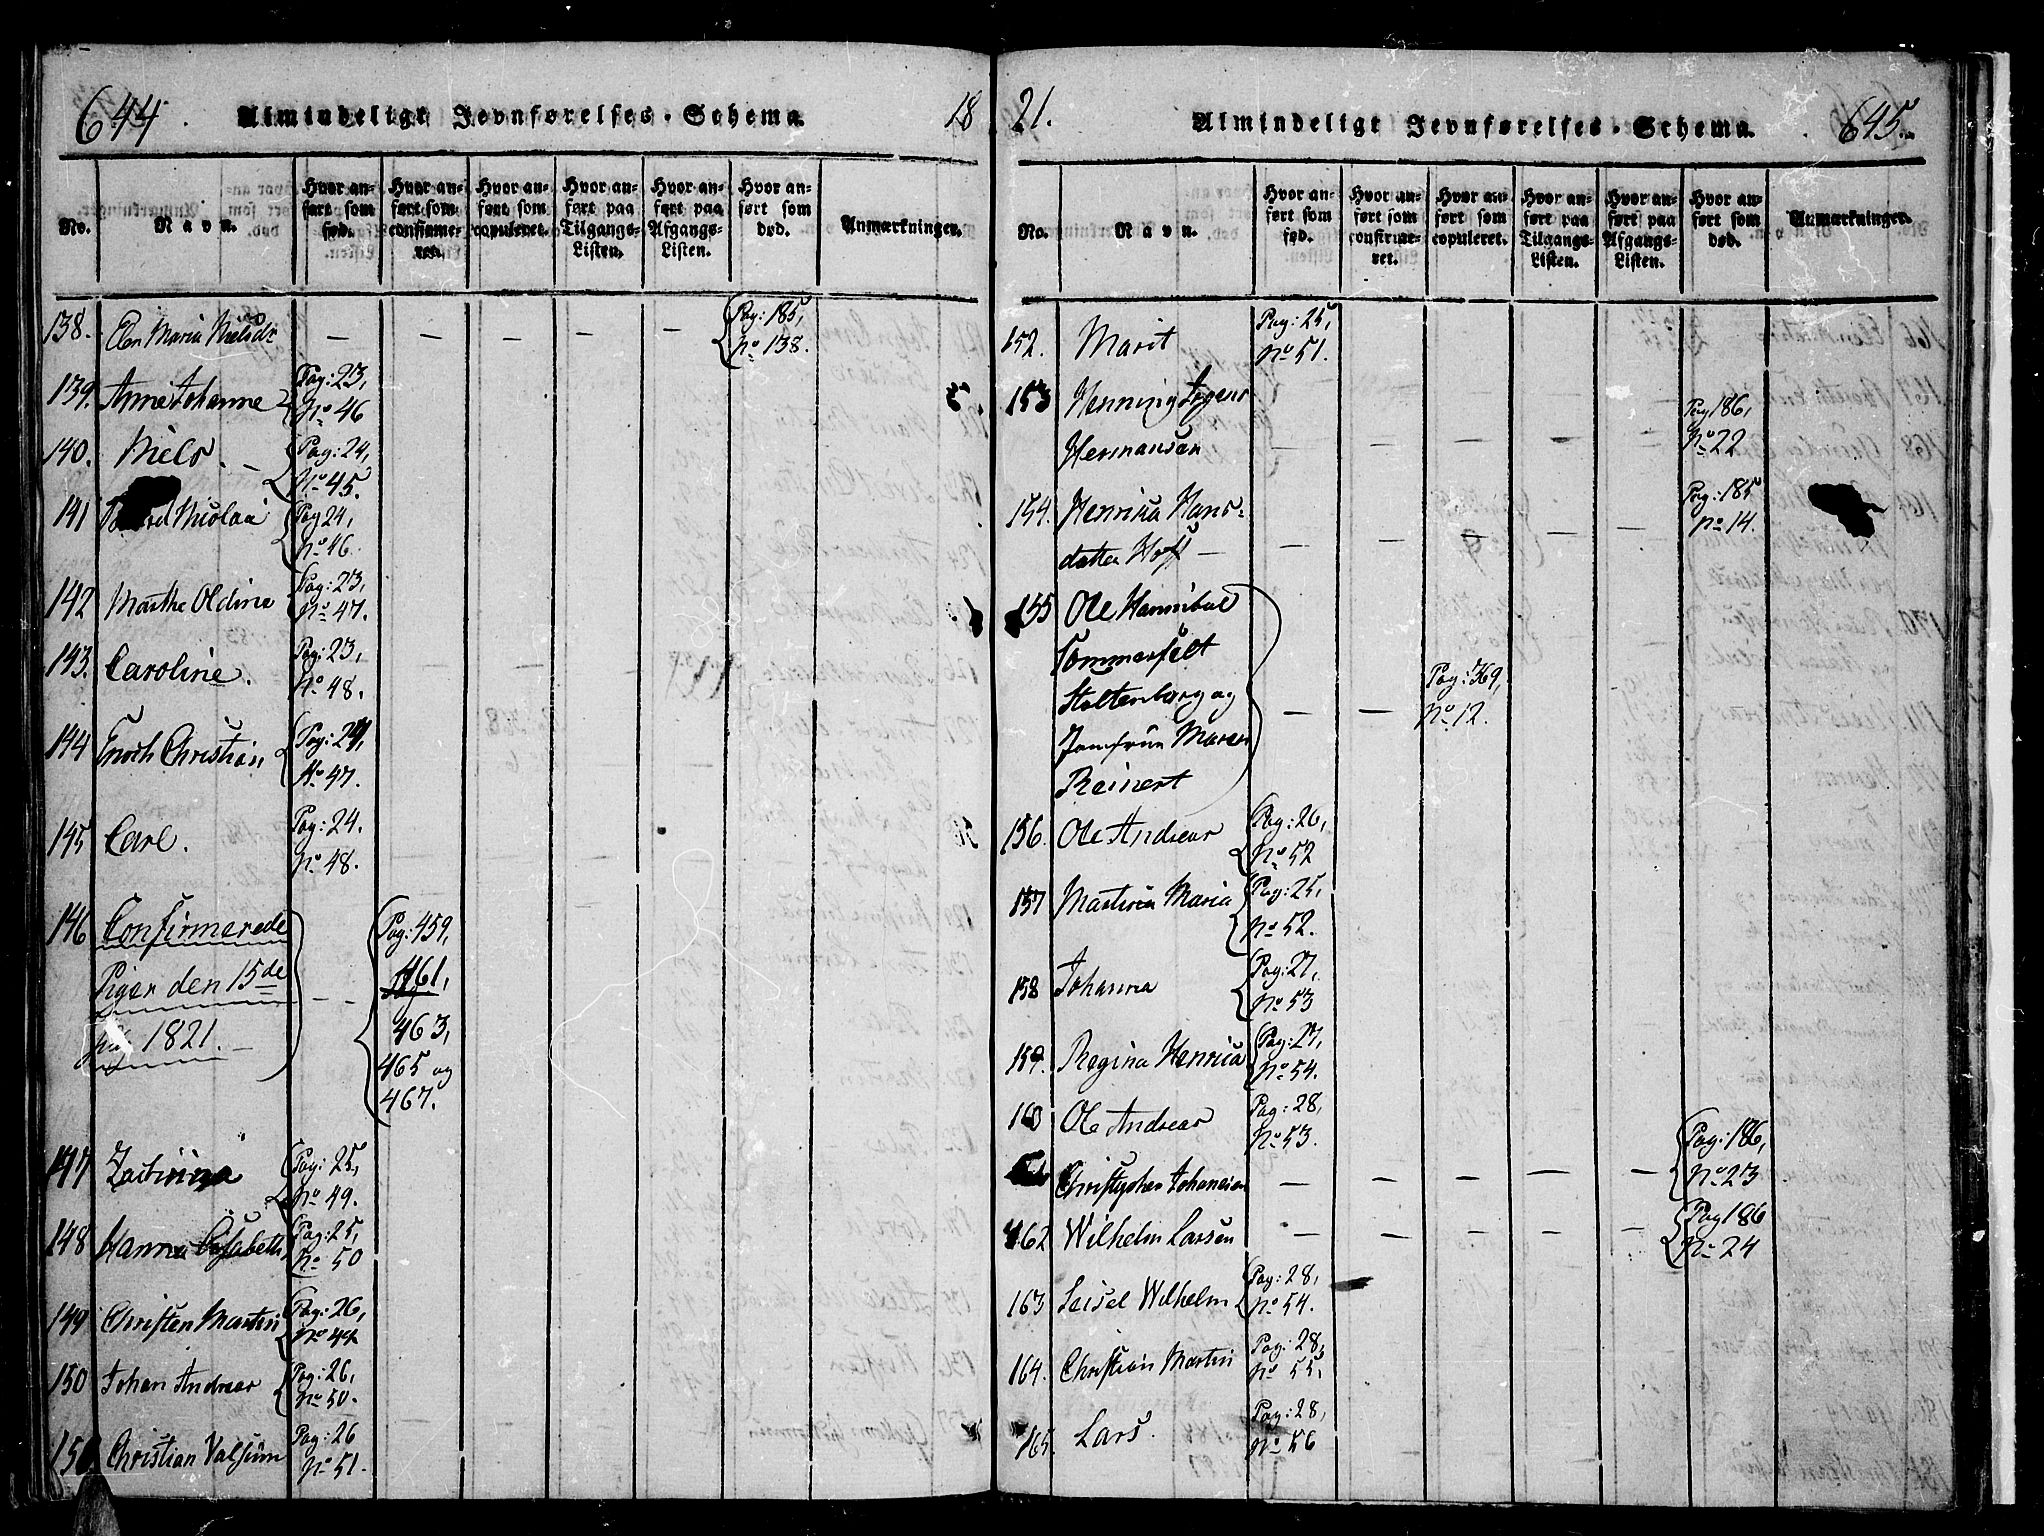 644. Almindeligt Jevnførelses-Schema. 18
No.
Navn.
Hvor anført som fød.
Hvor anført som confirmeret.
Hvor anført som copuleret.
Hvor anført paa Tilgangs-Listen.
Hvor anført paa Afgangs-Listen.
Hvor anført som død.
Anmærkninger.
138. Elen Maria Nielsdr — — — — — Pag: 185,
No 138.
139, Anne Johanne Pag: 23,
No 46
140. Niels. — Pag: 24,
No 45.
141 Nicolai Pag 24,
No 46.
142 Marthe Oldine Pag: 23,
No 47.
143. Caroline. Pag: 23,
No 48.
144 Enoch Christian Pag: 24,
No 47.
145 Carl. Pag: 24.
No 48.
146 Confirmerede Pag: 459,
Piger den 15de — — 461,
1821. — 463,
465 og
467.
147 Pag: 25,
No 49.
148 Hanna Elisabeth Pag: 25,
No 50
149 Christen Martin Pag: 26,
No 49
150 Johan Andreas Pag: 26,
No 50.
Christian Valsjün Pag: 26
No 51.
21. Almindeligt Jevnførelses-Schema. 645.
No.
Navn.
Hvor anført som fød.
Hvor anført som confirmeret.
Hvor anført som copuleret.
Hvor anført paa Tilgangs-Listen.
Hvor anført paa Afgangs-Listen.
Hvor anført som død.
Anmærkninger.
152. Marit Pag: 25,
No 51.
153 Henning Pag 186,
Hermansen — — — — — No 22
154. Henrika Hans- Pag: 185
datter Hoff — — — — — — No 14.
155 Ole Hannibal
Sommerfelt
Stoltenberg og Pag: 369,
Jomfrue Maren — — No 12.
Reinert
156. Ole Andreas Pag: 26,
No 52
157 Martina Maria Pag: 25,
No 52.
158 Johanna Pag: 27,
No 53
159. Regina Henrica Pag: 27,
No 54.
160 Ole Andreas Pag: 28,
No 53.
Christopher Johansen — — — — — Pag: 186,
No 23
162 Wilhelm Larsen — — — — — Pag 186
No 24
163 Wilhelm Pag: 28,
No 54.
164. Christian Martin Pag: 28,
No 55,
165. Lars. Pag: 28,
No 56